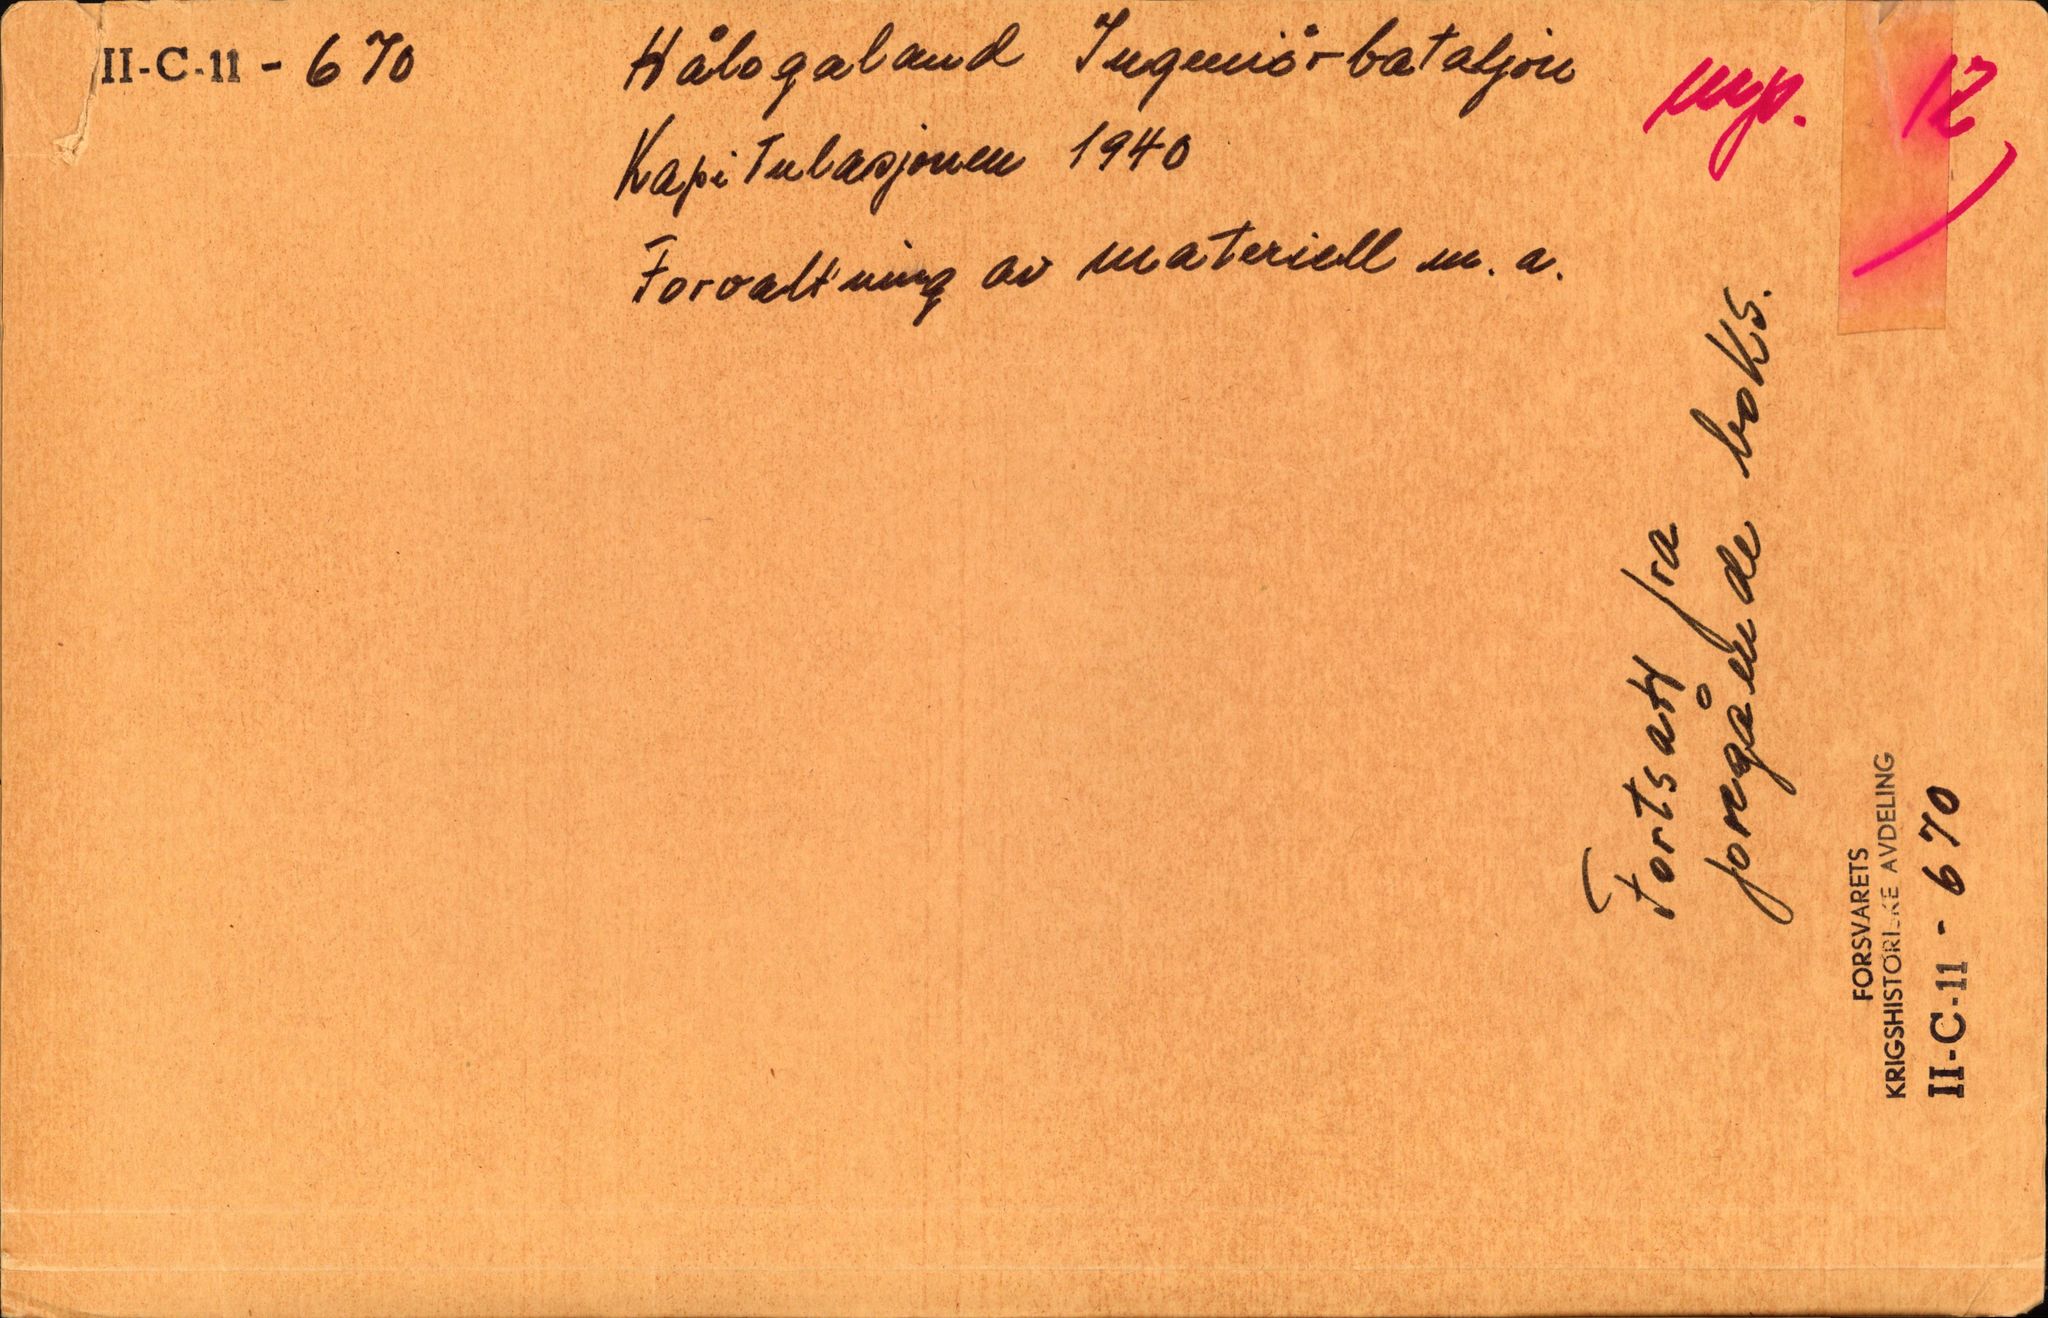 II-C-11 - 670
Hålogaland Ingeniør-bataljon
Kapitulasjonen 1940
Forvaltning av materiell m. a.
12
Fortsatt fra
foregående boks.
FORSVARETS
KRIGSHISTORISKE AVDELING
II-C-11 - 670